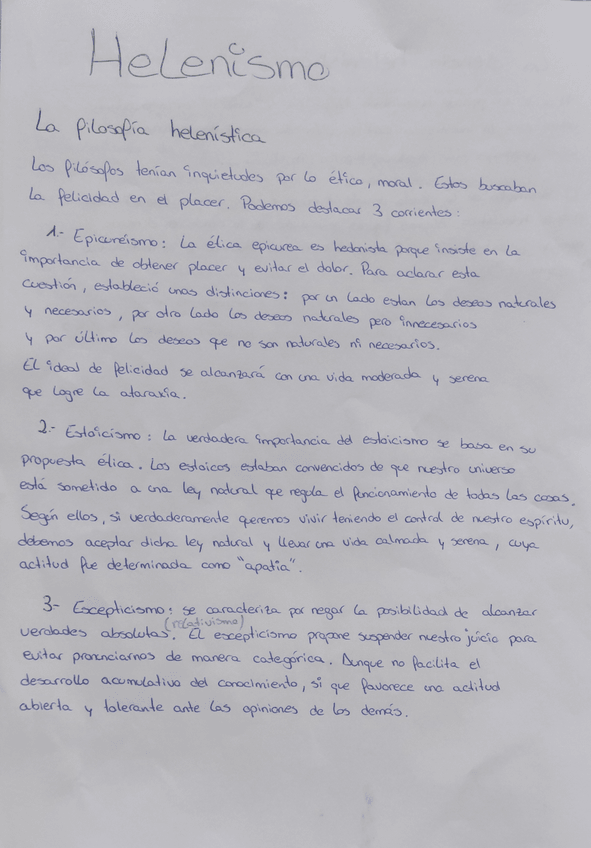 Helenismo
La filosofía helenística
Los filósofos tenían inquietudes por lo ético, moral. Estos buscaban
la felicidad en el placer. Podemos destacar 3 corrientes:
1.- Epicureísmo: La ética epicurea es hedonista porque insiste en la
importancia de obtener placer y evitar el dolor. Para aclarar esta
cuestión, estableció unas distinciones: por un lado estan los deseos naturales
y necesarios, por otro lado los deseos naturales pero innecesarios
y por último los deseos que no son naturales ni necesarios.
El ideal de felicidad se alcanzará con una vida moderada y serena
que logre la ataraxia.
2.- Estoicismo: La verdadera importancia del estoicismo se basa en su
propuesta ética. Los estoicos estaban convencidos de que nuestro universo
está sometido a una ley natural que regula el funcionamiento de todas las cosas.
Según ellos, si verdaderamente queremos vivir teniendo el control de nuestro espíritu,
debemos aceptar dicha ley natural y llevar una vida calmada y serena, cuya
actitud fue determinada como "apatía".
3- Escepticismo: se caracteriza por negar la posibilidad de alcanzar
(relativismo)
verdades absolutas. El escepticismo propone suspender nuestro juicio para
evitar pronunciarnos de manera categórica. Aunque no facilita el
desarrollo acumulativo del conocimiento, si que favorece una actitud
abierta y tolerante ante las opiniones de los demás.